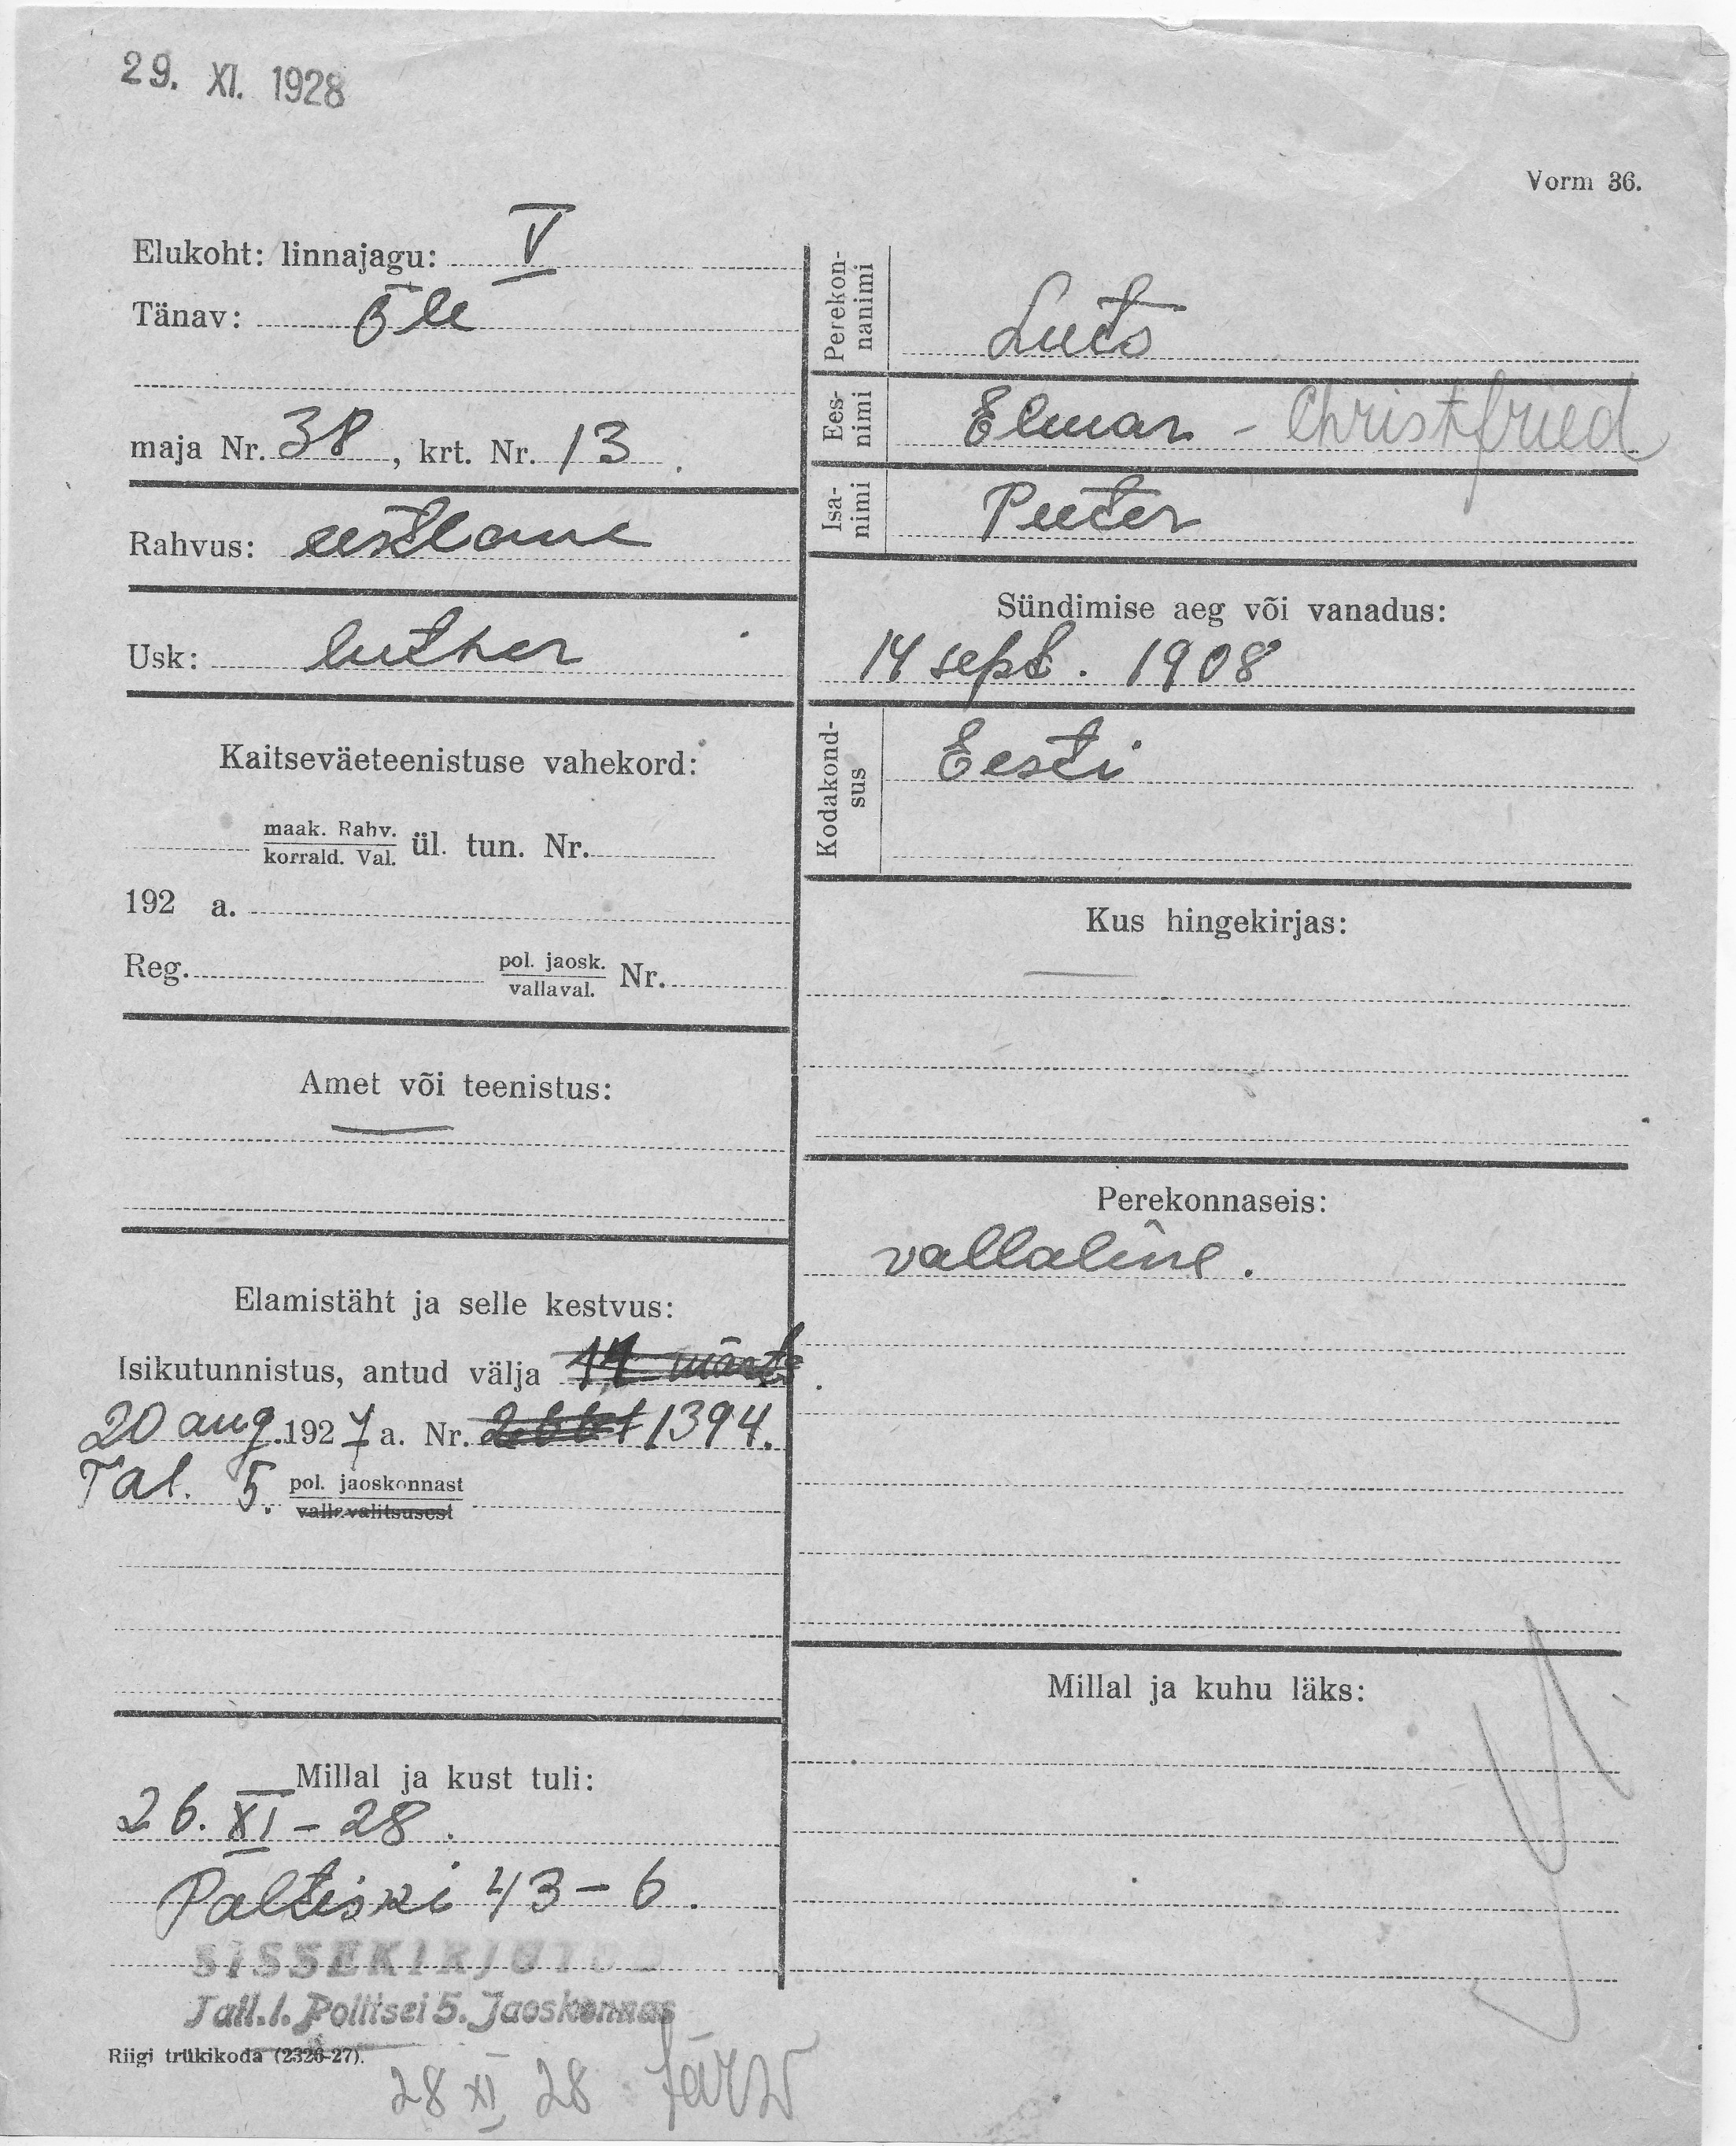 29. XI. 1928
Vorm 36.
Elukoht: linnajagu: V
Tänav: Õle
maja Nr. 38, krt. Nr. 13.
Rahvus: eestlane
Usk: luther
Kaitseväeteenistuse vahekord:
maak. Rahv.
korrald. Val. ül. tun. Nr.
192 a.
Reg. pol. jaosk. Nr.
vallaval.
Amet või teenistus:
Elamistäht ja selle kestvus:
Isikutunnistus, antud välja 14 märts
20 aug. 1927 a. Nr. 1394.
Tal. 5. pol. jaoskonnast
vallavalitsusest
Millal ja kust tuli:
26. XI - 28.
Paltiski 43-6.
SISSEKIRJUTUD
Tall.l. Politsei 5. Jaoskonnas
Riigi trükikoda (2326-27).
28 XI 28 Järw
Perekonnanimi Luts
Eesnimi Elmar - Christfried
Isanimi Peeter
Sündimise aeg või vanadus:
14 sept. 1908
Kodakondsus Eesti
Kus hingekirjas:
Perekonnaseis:
vallaline.
Millal ja kuhu läks: